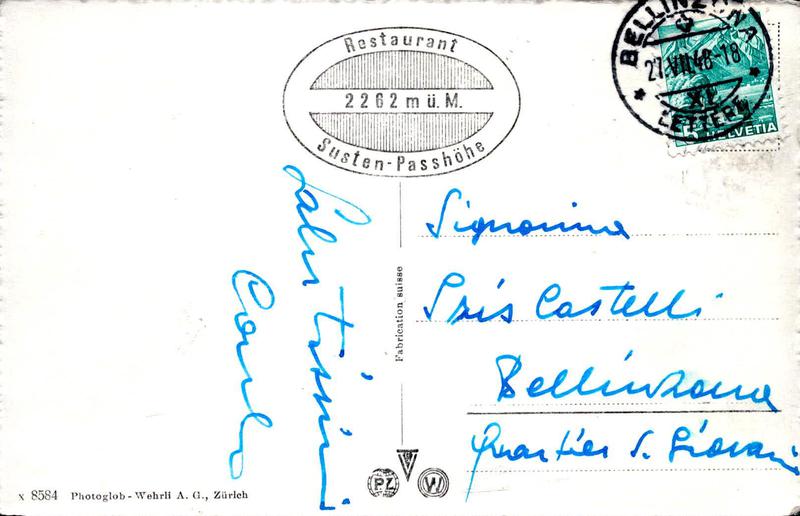 Restaurant
2262 m ü. M.
Susten-Passhöhe
BELLINZONA
27.VII.48-18
LETTERE
5 HELVETIA
Saluti
Carlo
Fabrication suisse
Signorina
Iris Castelli
Bellinzona
Quartier S. Giovani
x 8584 Photoglob-Wehrli A. G., Zürich
PZ
W